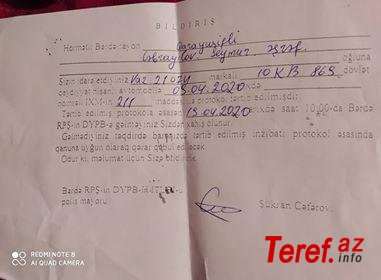 BİLDİRİŞ
Hörmətli Bərdə rayon Qarayusifli
Cəbrayılov Seymur Əşrəf oğluna
Sizin idarə etdiyiniz Vaz 21074 markalı 10 KB 869 dövlət
qeydiyyat nişanlı avtomobilə 05.04.2020
nömrəli İXM-in 211 maddəsi ilə protokol tərtib edilmişdi:
Tərtib edilmiş protokol əsasən 15.04.2020 saat 10:00-da Bərdə
RPŞ-in DYPB-ə gəlməyiniz Sizdən xahiş olunur.
Gəlmədiyiniz təqdirdə barənizdə tərtib edilmiş inzibati protokol əsasında
qanuna uyğun olaraq qərar qəbul ediləcək.
Odur ki, məlumat üçün Sizə bildirilir.
Bərdə RPŞ-in DYPB-
polis mayoru
Şükran Cəfərov
REDMI NOTE 8
AI QUAD CAMERA
Teref.az
.info